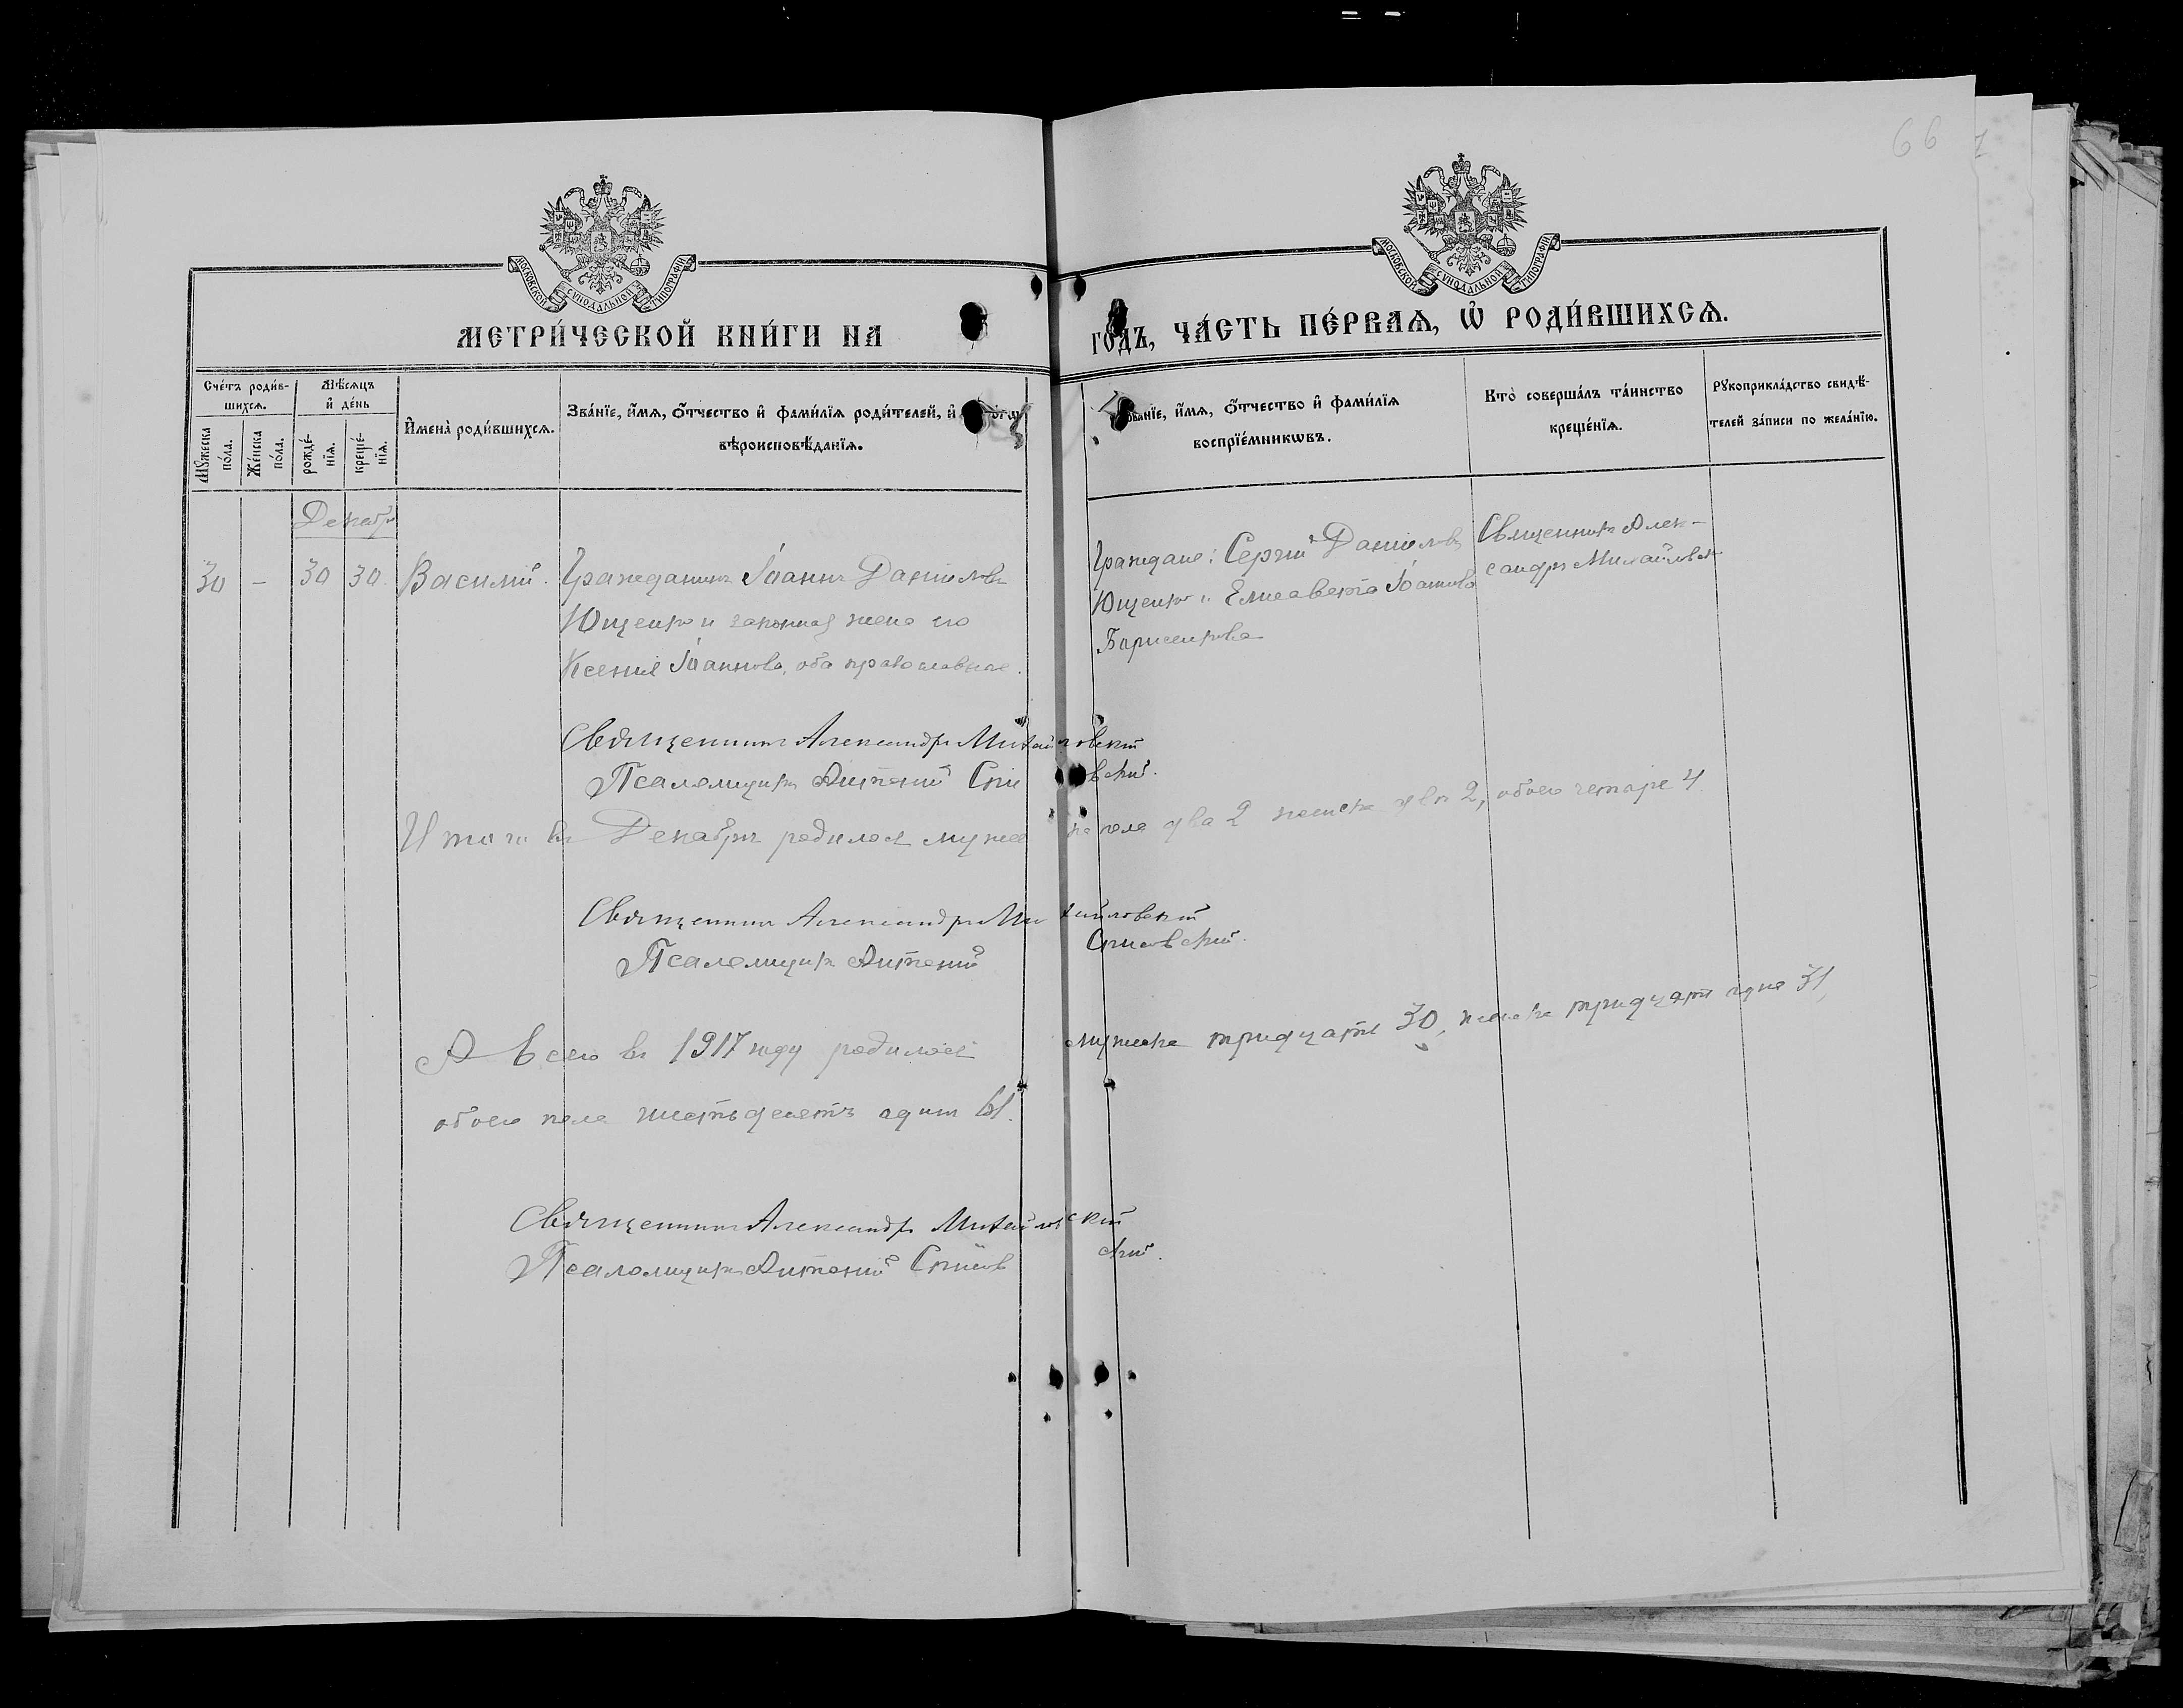 66
МОСКОВСКОЙ СУНОДАЛЬНОЙ ТИПОГРАФІИ
МОСКОВСКОЙ СУНОДАЛЬНОЙ ТИПОГРАФІИ
МЕТРИ́ЧЕСКОЙ КНИ́ГИ НА
ГОДЪ, ЧА́СТЬ ПЕ́РВАѦ, Ѡ҆ РОДИ́ВШИХСѦ.
Сче́тъ роди́в-
шихсѧ.
Мꙋжеска
по́ла.
Же́нска
по́ла.
Мѣ́сѧцъ
и҆ де́нь
рожде́-
нїѧ.
креще́-
нїѧ.
И҆мена̀ роди́вшихсѧ.
Зва́нїе, и҆́мѧ, ѻ҆́тчество и҆ фами́лїѧ роди́телей, и҆
вѣроисповѣ́данїѧ.
Зва́нїе, и҆́мѧ, ѻ҆́тчество и҆ фами́лїѧ
воспрїе́мникѡвъ.
Кто̀ соверша́лъ та́инство
креще́нїѧ.
Рꙋкоприкла́дство свидѣ́-
телей за́писи по жела́нїю.
Декабрь
30 - 30 30 Василій. Гражданинъ Іоаннъ Даниловъ
Ющенко и законная жена его
Ксенія Іоаннова, оба православные.
Граждане: Сергій Даниловъ
Ющенко и Елисавета Іоаннова
Борисенкова
Священникъ Алек-
сандръ Михайловскій
Священникъ Александръ Михайловскій
Псаломщикъ Антоній
Итого въ Декабрѣ родилося мужеска пола два 2 женска два 2, обоего четыре 4.
Священникъ Александръ Михайловскій
Псаломщикъ Антоній
А всего въ 1917 году родилося мужеска тридцать 30, женска тридцать одна 31,
обоего пола шестьдесятъ одинъ 61.
Священникъ Александръ Михайловскій
Псаломщикъ Антоній